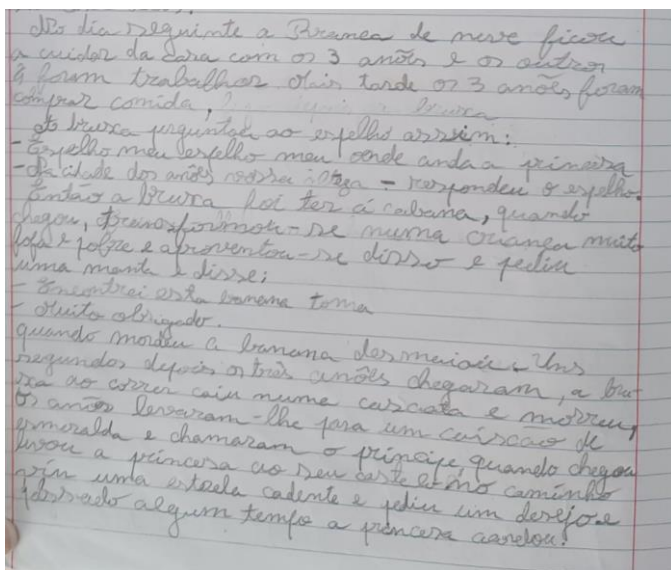 No dia seguinte a Branca de neve ficou
a cuidar da casa com os 3 anões e os outros
4 foram trabalhar. Mais tarde os 3 anões foram
comprar comida,
A bruxa perguntou ao espelho assim:
- Espelho meu espelho meu onde anda a princesa
- Na cidade dos anões vossa - respondeu o espelho.
Então a bruxa foi ter á cabana, quando
chegou, transformou-se numa criança muito
fofa e pobre e aproventou-se disso e pediu
uma manta e disse:
- Encontrei esta banana toma
- Muito obrigado.
quando mordeu a banana desmaiou. Uns
segundos depois os três anões chegaram, a bru-
xa ao correr caiu numa cascata e morreu,
os anões levaram-lhe para um caiscão de
esmeralda e chamaram o príncipe, quando chegou
levou a princesa ao seu castelo no caminho
viu uma estrela cadente e pediu um desejo e
passado algum tempo a princesa acordou.